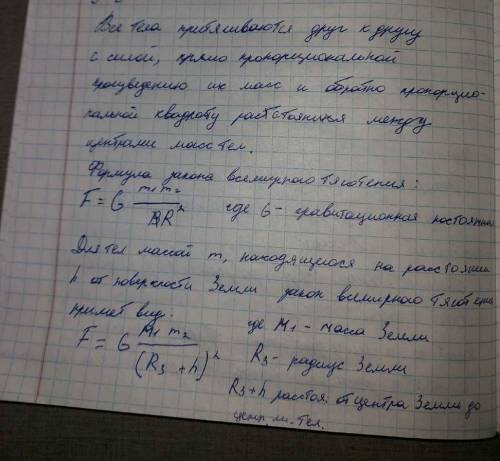 Все тела притягиваются друг к другу
с силой, прямо пропорциональной
произведению их масс и обратно пропорцио-
нальной квадрату расстояния между
центрами масс тел.
Формула закона всемирного тяготения:
F = G m₁m₂ / R² где G - гравитационная постоянная
Для тел массой m, находящегося на расстоянии
h от поверхности Земли закон всемирного тяготения
примет вид:
F = G M₁ m₂ / (R₃ + h)² где M₁ - масса Земли
R₃ - радиус Земли
R₃+h расстоя. от центра Земли до